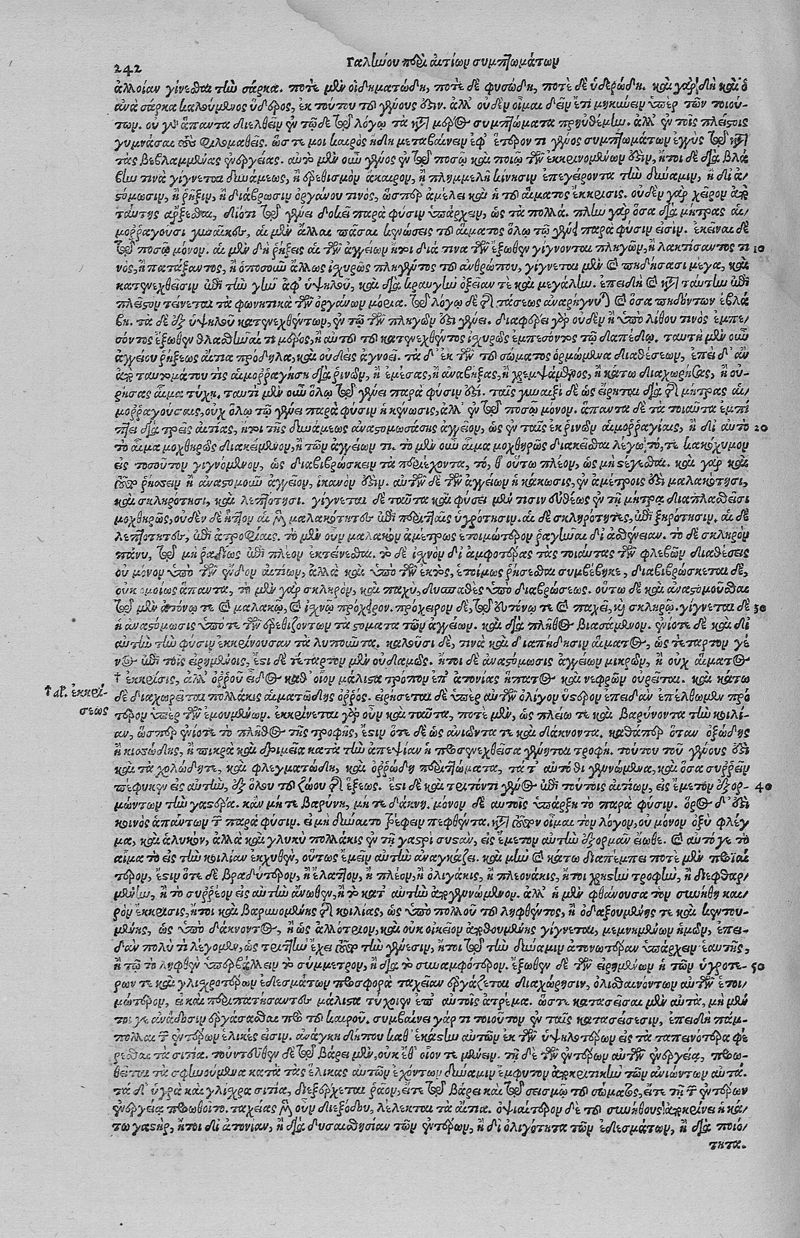 242 Γαληνοῦ περὶ αἰτίων συμπτωμάτων
ἀλλοίαν γίνεσθαι τὴν σάρκα. ποτὲ μὲν οἰδηματώδη, ποτὲ δὲ φυσώδη, ποτὲ δὲ ὑδερώδη. καὶ γὰρ δὴ καὶ ὁ
ἀνὰ σάρκα καλούμενος ὕδερος, ἐκ τούτου τοῦ γένους ἐστίν. ἀλλ' οὐδὲν οἶμαι δεῖν ἔτι μηκύνειν ὑπὲρ τῶν τοιού-
των. οὐ γὰρ ἅπαντα διελθεῖν ἐν τῷδε τῷ λόγῳ τὰ κατὰ μέρος συμπτώματα προὐθέμην. ἀλλ' ἐν τοῖς πλείστοις
γυμνάσαι τοὺς φιλομαθεῖς. ὥστε μοι καιρὸς ἤδη μεταβαίνειν ἐφ' ἕτερόν τι γένος συμπτωμάτων ἐγγὺς τῷ κατὰ
τὰς βεβλαμμένας ἐνεργείας. αὐτὸ μὲν οὖν γένος ἐν τῷ ποσῷ καὶ ποιῷ τῶν ἐκκρινομένων ἐστίν, ἤτοι δὲ διὰ βλά
βην τινὰ γίγνεται δυνάμεως, ἢ ἐρεθισμὸν ἄκαιρον, ἢ πλημμελῆ κίνησιν ἐπεγείροντα τὴν δύναμιν, ἢ δι' ἀ-
στόμωσιν, ἢ ῥῆξιν, ἢ διάβρωσιν ὀργάνου τινὸς, ὥσπερ ἀμέλει καὶ ἡ τοῦ αἵματος ἔκκρισις. οὐδὲν γὰρ χεῖρον ἀπὸ
ταύτης ἄρξεσθαι, διότι τῷ γένει δοκεῖ παρὰ φύσιν ὑπάρχειν, ὡς τὰ πολλά. πλὴν γὰρ ὅσα διὰ μήτρας αἱ-
μορραγοῦσι γυναῖκες, αἱ μὲν ἄλλαι πᾶσαι κενώσεις τοῦ αἵματος ὅλῳ τῷ γένει παρὰ φύσιν εἰσίν. ἐκεῖναι δὲ
τῷ ποσῷ μόνον. αἱ μὲν δὴ ῥήξεις αἱ τῶν ἀγγείων ἤτοι διά τινα τῶν ἔξωθεν γίγνονται πληγῶν, ἢ λακτίσαντός τι 10
νος, ἢ πατάξαντος, ἢ ὁπωσοῦν ἄλλως ἰσχυρῶς πλήξαντος τὸν ἄνθρωπον, γίγνεται μὲν καὶ πηδήσασι μέγα, καὶ
κατενεχθεῖσιν ἐπὶ τὴν γῆν ἀφ' ὑψηλοῦ, καὶ διὰ κραυγὴν ὀξεῖάν τε καὶ μεγάλην. ἐπειδὴ καὶ κατὰ ταύτην ἐπὶ
πλεῖστον τείνεται τὰ φωνητικὰ τῶν ὀργάνων μόρια. τῷ λόγῳ δὲ τῆς τάσεως ἀναρρήγνυται καὶ ὅσα πηδώντων ἐβλά
βη. τὰ δὲ ἐξ ὑψηλοῦ κατενεχθέντων, ἐν τῷ τῶν πληγῶν ἐστι γένει. διαφέρει γὰρ οὐδὲν ἢ ὑπὸ λίθου τινὸς ἐμπε-
σόντος ἔξωθεν θλασθῆναί τι μέρος, ἢ αὐτὸ τοῦ κατενεχθέντος ἰσχυρῶς ἐμπεσόντος τῷ δαπέδῳ. ταυτὶ μὲν οὖν
ἀγγείου ῥήξεως αἴτια πρόδηλα, καὶ οὐδεὶς ἀγνοεῖ. τὰ δ' ἐκ τῶν τοῦ σώματος ὁρμώμενα διαθέσεων, ἐπειδ' ἂν
ἀπὸ ταὐτομάτου τις αἱμορραγήσῃ διὰ ῥινῶν, ἢ ἐμέσας, ἢ ἀναβήξας, ἢ χρεμψάμενος, ἢ κάτω διαχωρήσας, ἢ οὐ-
ρήσας αἷμα τύχῃ, ταυτὶ μὲν οὖν ὅλῳ τῷ γένει παρὰ φύσιν ἐστί. ταῖς γυναιξὶ δὲ ὡς εἴρηται διὰ τῆς μήτρας αἱ-
μορραγούσαις, οὐχ ὅλῳ τῷ γένει παρὰ φύσιν ἡ κένωσις, ἀλλ' ἐν τῷ ποσῷ μόνον. ἅπαντα δὲ τὰ τοιαῦτα ἐμπί
πτει διὰ τρεῖς αἰτίας, ἤτοι τῆς δυνάμεως ἀναστομωσάσης ἀγγεῖον, ὡς ἐν ταῖς ἐκκρίνων αἱμορραγίαις, ἢ δι' αὐτὸ 20
τὸ αἷμα μοχθηρῶς διακείμενον, ἢ τῶν ἀγγείων τι. τὸ μὲν οὖν αἷμα μοχθηρῶς διακεῖσθαι λέγω τό, τε κακόχυμον
εἰς τοσοῦτον γιγνόμενον, ὡς διαβιβρώσκειν τὰ περιέχοντα, τό, θ' οὕτω πλέον, ὡς μὴ στέγεσθαι. καὶ γὰρ καὶ
τοῦτο ῥήσσειν ἢ ἀναστομοῦν ἀγγεῖον, ἱκανόν ἐστιν. αὐτῶν δὲ τῶν ἀγγείων ἡ κάκωσις, ἐν ἀμέτροις ἐστὶ μαλακότησι,
καὶ σκληρότησι, καὶ λεπτότησι. γίγνεται δὲ ταῦτα καὶ φύσει μέν τισιν εὐθέως ἐν τῇ μήτρᾳ διαπλασθεῖσι
μοχθηρῶς, οὐδὲν δὲ ἧττον αἱ μὲν μαλακότητες ἐπὶ περιτταῖς ὑγρότησιν. αἱ δὲ σκληρότητες, ἐπὶ ξηρότησιν. αἱ δὲ
λεπτότητες, ἐπὶ ἀτροφίαις. τὸ μὲν οὖν μαλακὸν ἀμέτρως ἑτοιμώτερον ῥαγῆναι δι' ἀσθένειαν. τὸ δὲ σκληρὸν
πάνυ, τῷ μὴ ῥᾳδίως ἐπὶ πλέον ἐκτείνεσθαι. τὸ δὲ ἰσχνὸν δι' ἀμφοτέρας τὰς τοιαύτας τῶν φλεβῶν διαθέσεις
οὐ μόνον ὑπὸ τῶν ἔνδον αἰτίων, ἀλλὰ καὶ ὑπὸ τῶν ἐκτὸς, ἑτοίμως ῥήσσεσθαι συμβέβηκε, διαβιβρώσκεται δὲ,
οὐχ ὁμοίως ἅπαντα, τὸ μὲν γὰρ σκληρὸν, καὶ παχὺ, δυσπαθὲς ὑπὸ διαβρώσεως. οὕτω δὲ καὶ ἀναστομοῦσθαι
τῷ μὲν ἀτόνῳ τε καὶ μαλακῷ, καὶ ἰσχνῷ πρόχειρον. πρόχειρον δὲ, τῷ εὐτόνῳ τε καὶ παχεῖ, καὶ σκληρῷ. γίγνεται δὲ 30
ἡ ἀναστόμωσις ὑπό τε τῶν ἐρεθιζόντων τὰ στόματα τῶν ἀγγείων. καὶ διὰ πλῆθος βιασάμενον. ἐνίοτε δὲ καὶ δι'
αὐτὴν τὴν φύσιν ἐκκρίνουσαν τὰ λυποῦντα. καλοῦσι δὲ, τινὰ καὶ διαπήδησιν αἵματος, ὡς τέταρτον γέ
νος ἐπὶ τοῖς εἰρημένοις, ἔστι δὲ τέταρτον μὲν οὐδαμῶς. ἤτοι δὲ ἀναστόμωσις ἀγγείων μικρῶν, ἢ οὐχ αἵματος
† ἔκκρισις, ἀλλ' ὀρροῦ εἶδος καθ' οἷον μάλιστα τρόπον ἐπ' ἀτονίαις ἥπατος καὶ νεφρῶν οὐρεῖται. καὶ κάτω
† al. ἐκκρί-
σεως
δὲ διαχωρεῖται πολλάκις αἱματώδης ὀρρός. εἰρήσεται δὲ ὑπὲρ αὐτῶν ὀλίγον ὕστερον ἐπειδὰν ἐπέλθωμεν πρό
τερον ὑπὲρ τῶν ἐμουμένων. ἐκκρίνεται γὰρ οὖν καὶ ταῦτα, ποτὲ μὲν, ὡς πλείω τε καὶ βαρύνοντα τὴν κοιλί-
αν, ὥσπερ ἐνίοτε τὸ πλῆθος τῆς τροφῆς, ἔστιν ὅτε δὲ ὡς ἀνιῶντά τε καὶ δάκνοντα, καθάπερ ὅταν ὀξώδης
ἢ κνισώδης, ἢ πικρὰ καὶ δριμεῖα κατὰ τὴν ἀπεψίαν ἢ προσενεχθεῖσα γένηται τροφή. τούτου τοῦ γένους ἐστὶ
καὶ τὰ χολώδη τε, καὶ φλεγματώδη, καὶ ὀρρώδη περιττώματα, τά τ' αὐτόθι γεννώμενα, καὶ ὅσα συρρεῖν
πέφυκεν εἰς αὐτὴν, ἐξ ὅλου τοῦ ζώου τῆς ἕξεως. ἔστι δὲ καὶ τρίτον τι γένος ἐπὶ τούτοις αἰτίων, εἰς ἔμετον ἐξορ- 40
μώντων τὴν γαστέρα. κἂν μήτε βαρύνῃ, μήτε δάκνῃ. μόνον δὲ αὐτοῖς ὑπάρξῃ τὸ παρὰ φύσιν. ὅρος δ' ἐστὶ
κοινὸς ἁπάντων τῶν παρὰ φύσιν. εἰ μὴ δύναιτο τρέφειν πεφθέντα. κατὰ τοῦτον οἶμαι τὸν λόγον, οὐ μόνον ὀξὺ φλέγ
μα, καὶ ἁλυκὸν, ἀλλὰ καὶ γλυκὺ πολλάκις ἐν τῇ γαστρὶ συστὰν, εἰς ἔμετον αὐτὴν ἐξορμᾶν εἴωθε. καὶ αὐτό γε τὸ
αἷμα τὸ εἰς τὴν κοιλίαν ἐκχυθὲν, οὕτως ἐμεῖν αὐτὴν ἀναγκάζει. καὶ μὴν καὶ κάτω διαπέμπει ποτὲ μὲν πρωϊαί
τερον, ἔστιν ὅτε δὲ βραδύτερον, ἢ ἔλαττον, ἢ πλέον, ἢ ὀλιγάκις, ἢ πλεονάκις, ἤτοι χρηστὴν τροφὴν, ἢ διεφθαρ
μένην, ἢ τὸ συρρέον εἰς αὐτὴν ἄνωθεν, ἢ τὸ κατ' αὐτὴν ἀπογεννώμενον. ἀλλ' ἡ μὲν φθάνουσα τὸν συνήθη και-
ρὸν ἔκκρισις, ἤτοι καὶ βαρυνομένης τῆς κοιλίας, ὡς ὑπὸ πολλοῦ τοῦ ληφθέντος, ἢ ὀδαξουμένης τε καὶ κεντου-
μένης, ὡς ὑπὸ δάκνοντος, ἢ ὡς ἀλλότριον, καὶ οὐκ οἰκεῖον ἀπωθουμένης γίγνεται, μεμνημένων ἡμῶν, ἐπει-
δὰν πολύ τι λέγωμεν, ὡς τριττὴν ἔχει τοῦτο τὴν γένεσιν, ἤτοι τῷ τὴν δύναμιν ἀτονωτέραν ὑπάρχειν ἑαυτῆς,
ἢ τῷ τὸ ληφθὲν ὑπερβάλλειν τὸ σύμμετρον, ἢ διὰ τὸ συναμφότερον. ἔξωθεν δὲ τῶν εἰρημένων ἡ τῶν ὑγροτέ- 50
ρων τε καὶ γλισχροτέρων ἐδεσμάτων προσφορὰ ταχεῖαν ἐργάζεται διαχώρησιν, ὀλισθαινόντων αὐτῶν ἑτοι-
μότερον, εἰ καὶ περιπατήσαντος μάλιστα τύχοιεν ἐπ' αὐτοῖς ἀτρέμα. ὥστε κατασεῖσαι μὲν αὐτὰ, μὴ μέν
τοί γε ἀνάδοσιν ἐργάσασθαι πρὸ τοῦ καιροῦ. συμβαίνει γάρ τι τοιοῦτον ἐν ταῖς κατασείσεσιν, ἐπειδὴ πάμ-
πολλαι τῶν ἐντέρων ἕλικές εἰσιν. ἀνάγκη δήπου καθ' ἑκάστην αὐτῶν ἐκ τῶν ὑψηλοτέρων εἰς τὰ ταπεινότερα φέ
ρεσθαι τὰ σιτία. τοὐντεῦθεν δὲ τῷ βάρει μὲν, οὐκ ἔθ' οἷόν τε μένειν. τῇ δὲ τῶν ἐντέρων αὐτῶν ἐνεργείᾳ, προω-
θεῖται τὰ σφηνούμενα κατὰ τὰς ἕλικας αὐτῶν ἐχόντων δύναμιν ἔμφυτον ἀποκριτικὴν τῶν ἀνιώντων αὐτά.
τὰ δ' ὑγρὰ καὶ γλίσχρα σιτία, διεξέρχεται ῥᾷον, εἴτε τῷ βάρει καὶ τῷ σεισμῷ τοῦ σώματος, εἴτε τῇ τῶν ἐντέρων
ἐνεργείᾳ προωθοῖτο. ταχείας μὲν οὖν διεξόδου, λέλεκται τὰ αἴτια. ὀψιαίτερον δὲ τοῦ συνήθους ἀποκρίνει ἡ κά-
τω γαστὴρ, ἤτοι δι' ἀτονίαν, ἢ διὰ δυσαισθησίαν τῶν ἐντέρων, ἢ δι' ὀλιγότητα τῶν ἐδεσμάτων, ἢ διὰ ποιό-
τητα.